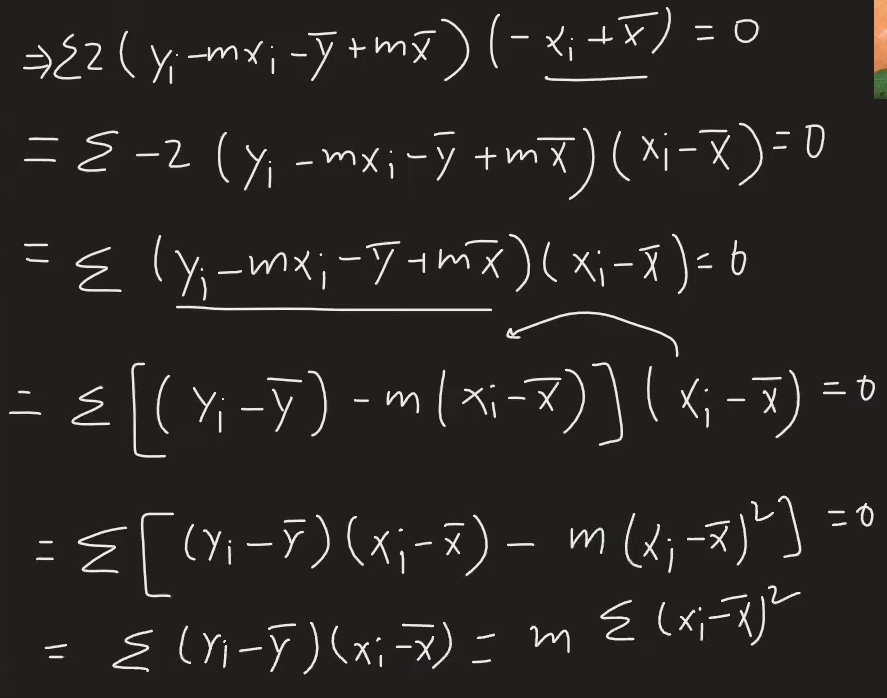 ⇒ Σ2(yᵢ-mxᵢ-y̅+mx̅)(-xᵢ+x̅) = 0
= Σ -2 (yᵢ -mxᵢ-y̅ +mx̅)(xᵢ-x̅)=0
= Σ (yᵢ-mxᵢ-y̅+mx̅)(xᵢ-x̅)=0
= Σ [(yᵢ-y̅) - m(xᵢ-x̅)](xᵢ-x̅) =0
= Σ[(yᵢ-y̅)(xᵢ-x̅) - m(xᵢ-x̅)²] =0
= Σ(yᵢ-y̅)(xᵢ-x̅) = m Σ(xᵢ-x̅)²